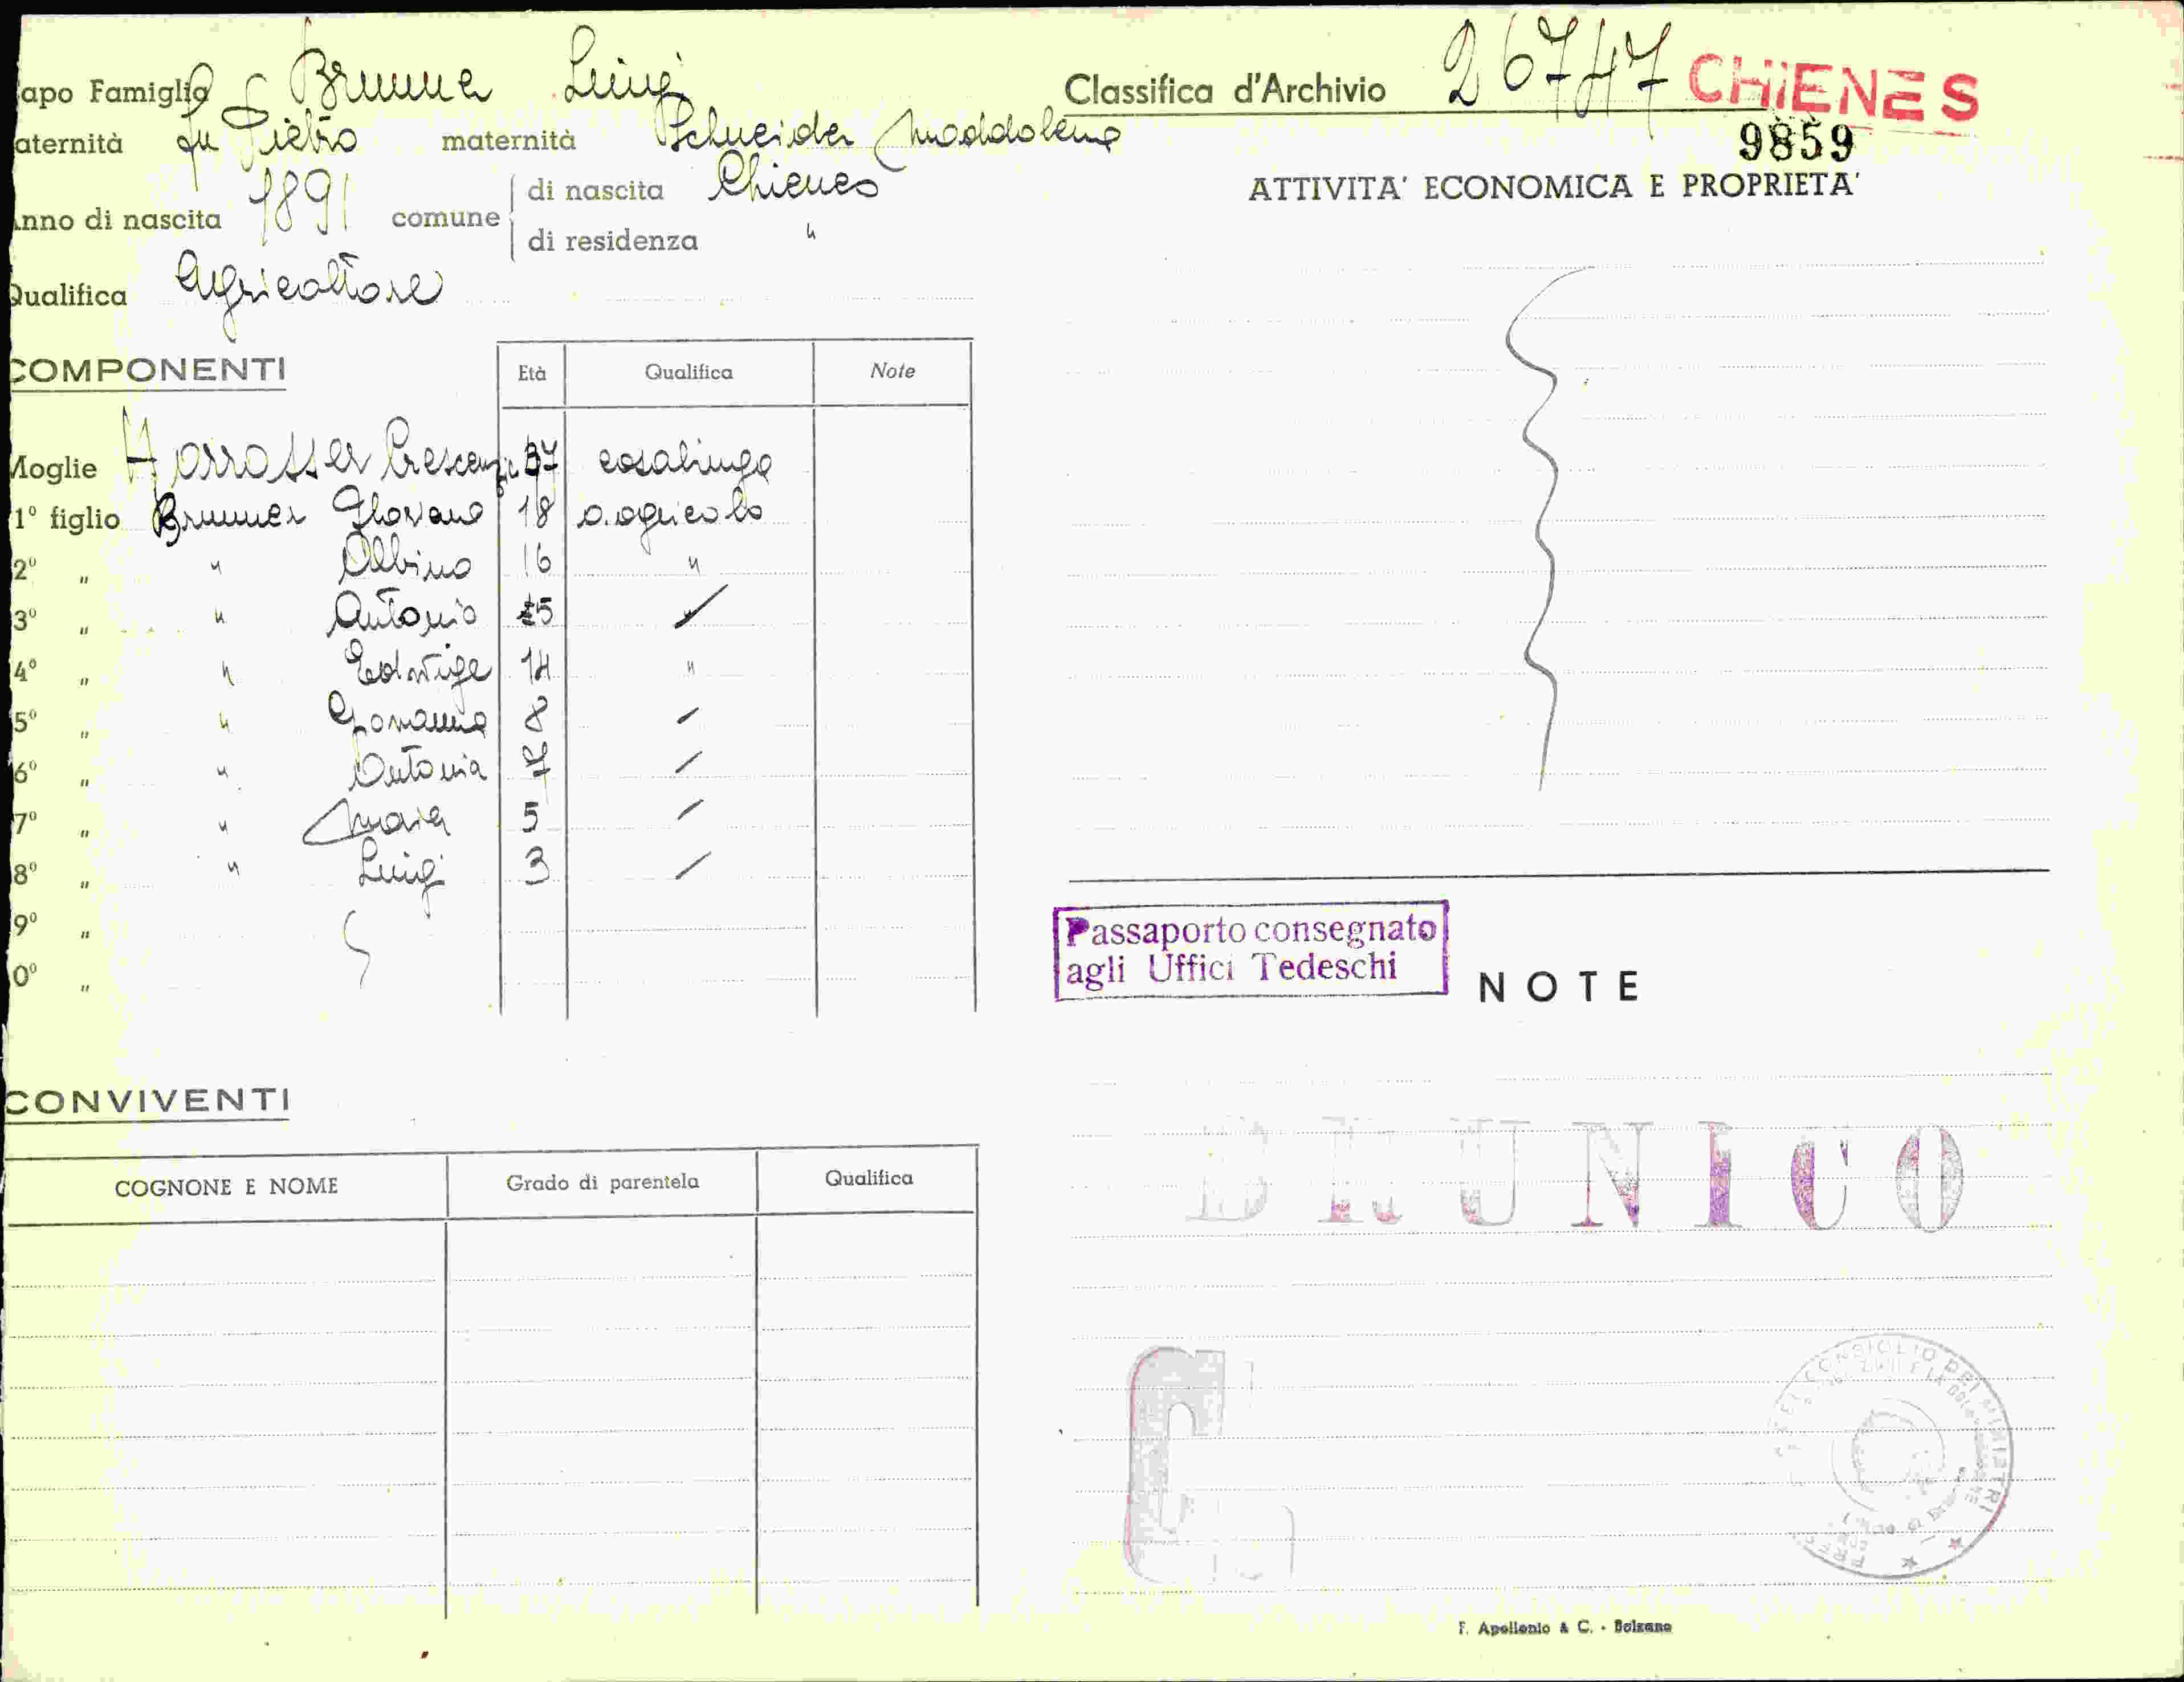 apo Famiglia Brunner Luigi
aternità fu Pietro maternità Schneider Maddalena
nno di nascita 1891 comune di nascita Chienes
di residenza "
Qualifica Agricoltore
Classifica d'Archivio 26747 CHIENES
9859
ATTIVITA' ECONOMICA E PROPRIETA'
COMPONENTI Età Qualifica Note
Moglie Harrasser Crescenzia 37 casalinga
1° figlio Brunner Giovanni 18 a. agricolo
2° " " Albino 16 "
3° " " Antonio 15
4° " " Edvige 14 "
5° " " Giovanna 8
6° " " Antonia 7
7° " " Maria 5
8° " " Luigi 3
9° "
0° "
Passaporto consegnato
agli Uffici Tedeschi
NOTE
CONVIVENTI
COGNONE E NOME Grado di parentela Qualifica
BRUNICO
F. Apollonio & C. - Bolzano